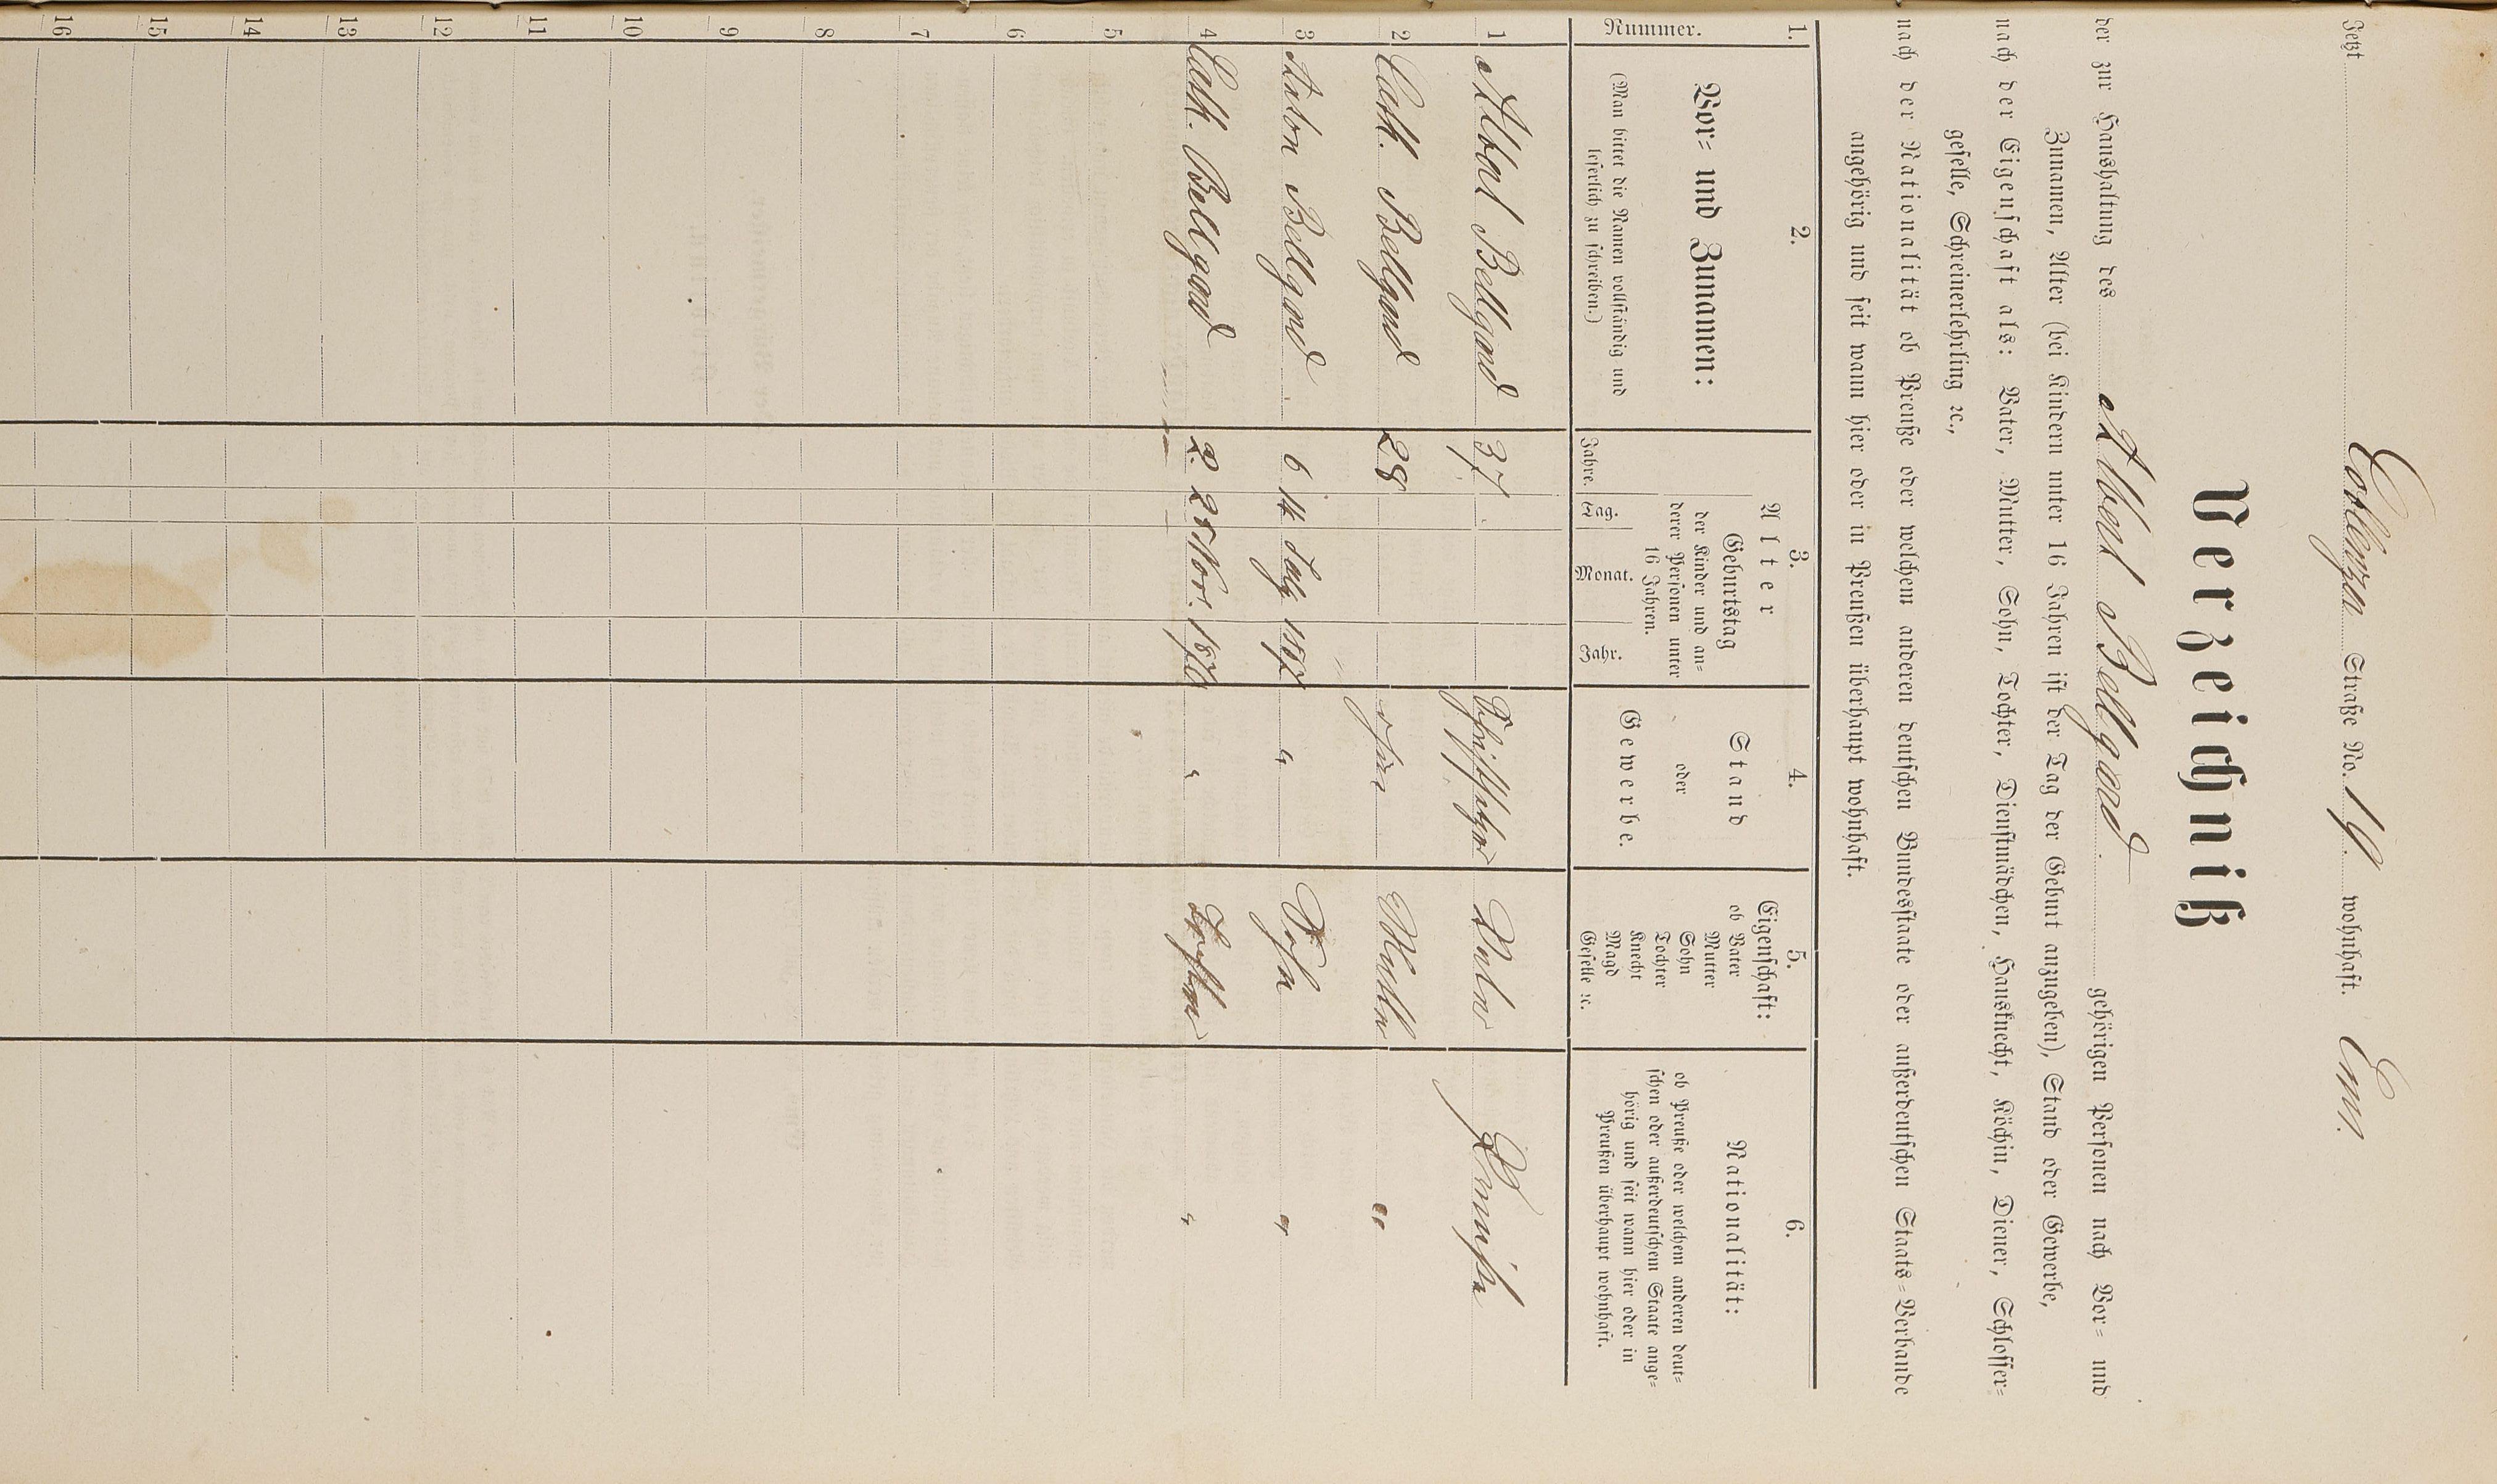 Jetzt Coblenzer Straße No. 19. wohnhaft. Em.
Verzeichniß
der zur Haushaltung des Albert Bellgard. gehörigen Personen nach Vor= und
Zunamen, Alter (bei Kindern unter 16 Jahren ist der Tag der Geburt anzugeben), Stand oder Gewerbe,
nach der Eigenschaft als: Vater, Mutter, Sohn, Tochter, Dienstmädchen, Hausknecht, Köchin, Diener, Schlosser=
geselle, Schreinerlehrling ꝛc.,
nach der Nationalität ob Preuße oder welchem anderen deutschen Bundesstaate oder außerdeutschen Staats=Verbande
angehörig und seit wann hier oder in Preußen überhaupt wohnhaft.
1. 2. 3. 4. 5. 6.
Nummer.
Vor= und Zunamen:
(Man bittet die Namen vollständig und
leserlich zu schreiben.)
Alter
Geburtstag
der Kinder und an=
derer Personen unter
16 Jahren.
Jahre. Tag. Monat. Jahr.
Stand
oder
Gewerbe.
Eigenschaft:
ob Vater
Mutter
Sohn
Tochter
Knecht
Magd
Geselle ꝛc.
Nationalität:
ob Preuße oder welchem anderen deut=
schen oder außerdeutschem Staate ange=
hörig und seit wann hier oder in
Preußen überhaupt wohnhaft.
1 Albert Bellgard 37 Schriftsetzer Vater Preuße
2 Cath. Bellgard 28 ohne Mutter "
3 Anton Bellgard 6 14 " Sohn "
4 Cath. Bellgard 2 Nov. " Tochter "
5
6
7
8
9
10
11
12
13
14
15
16